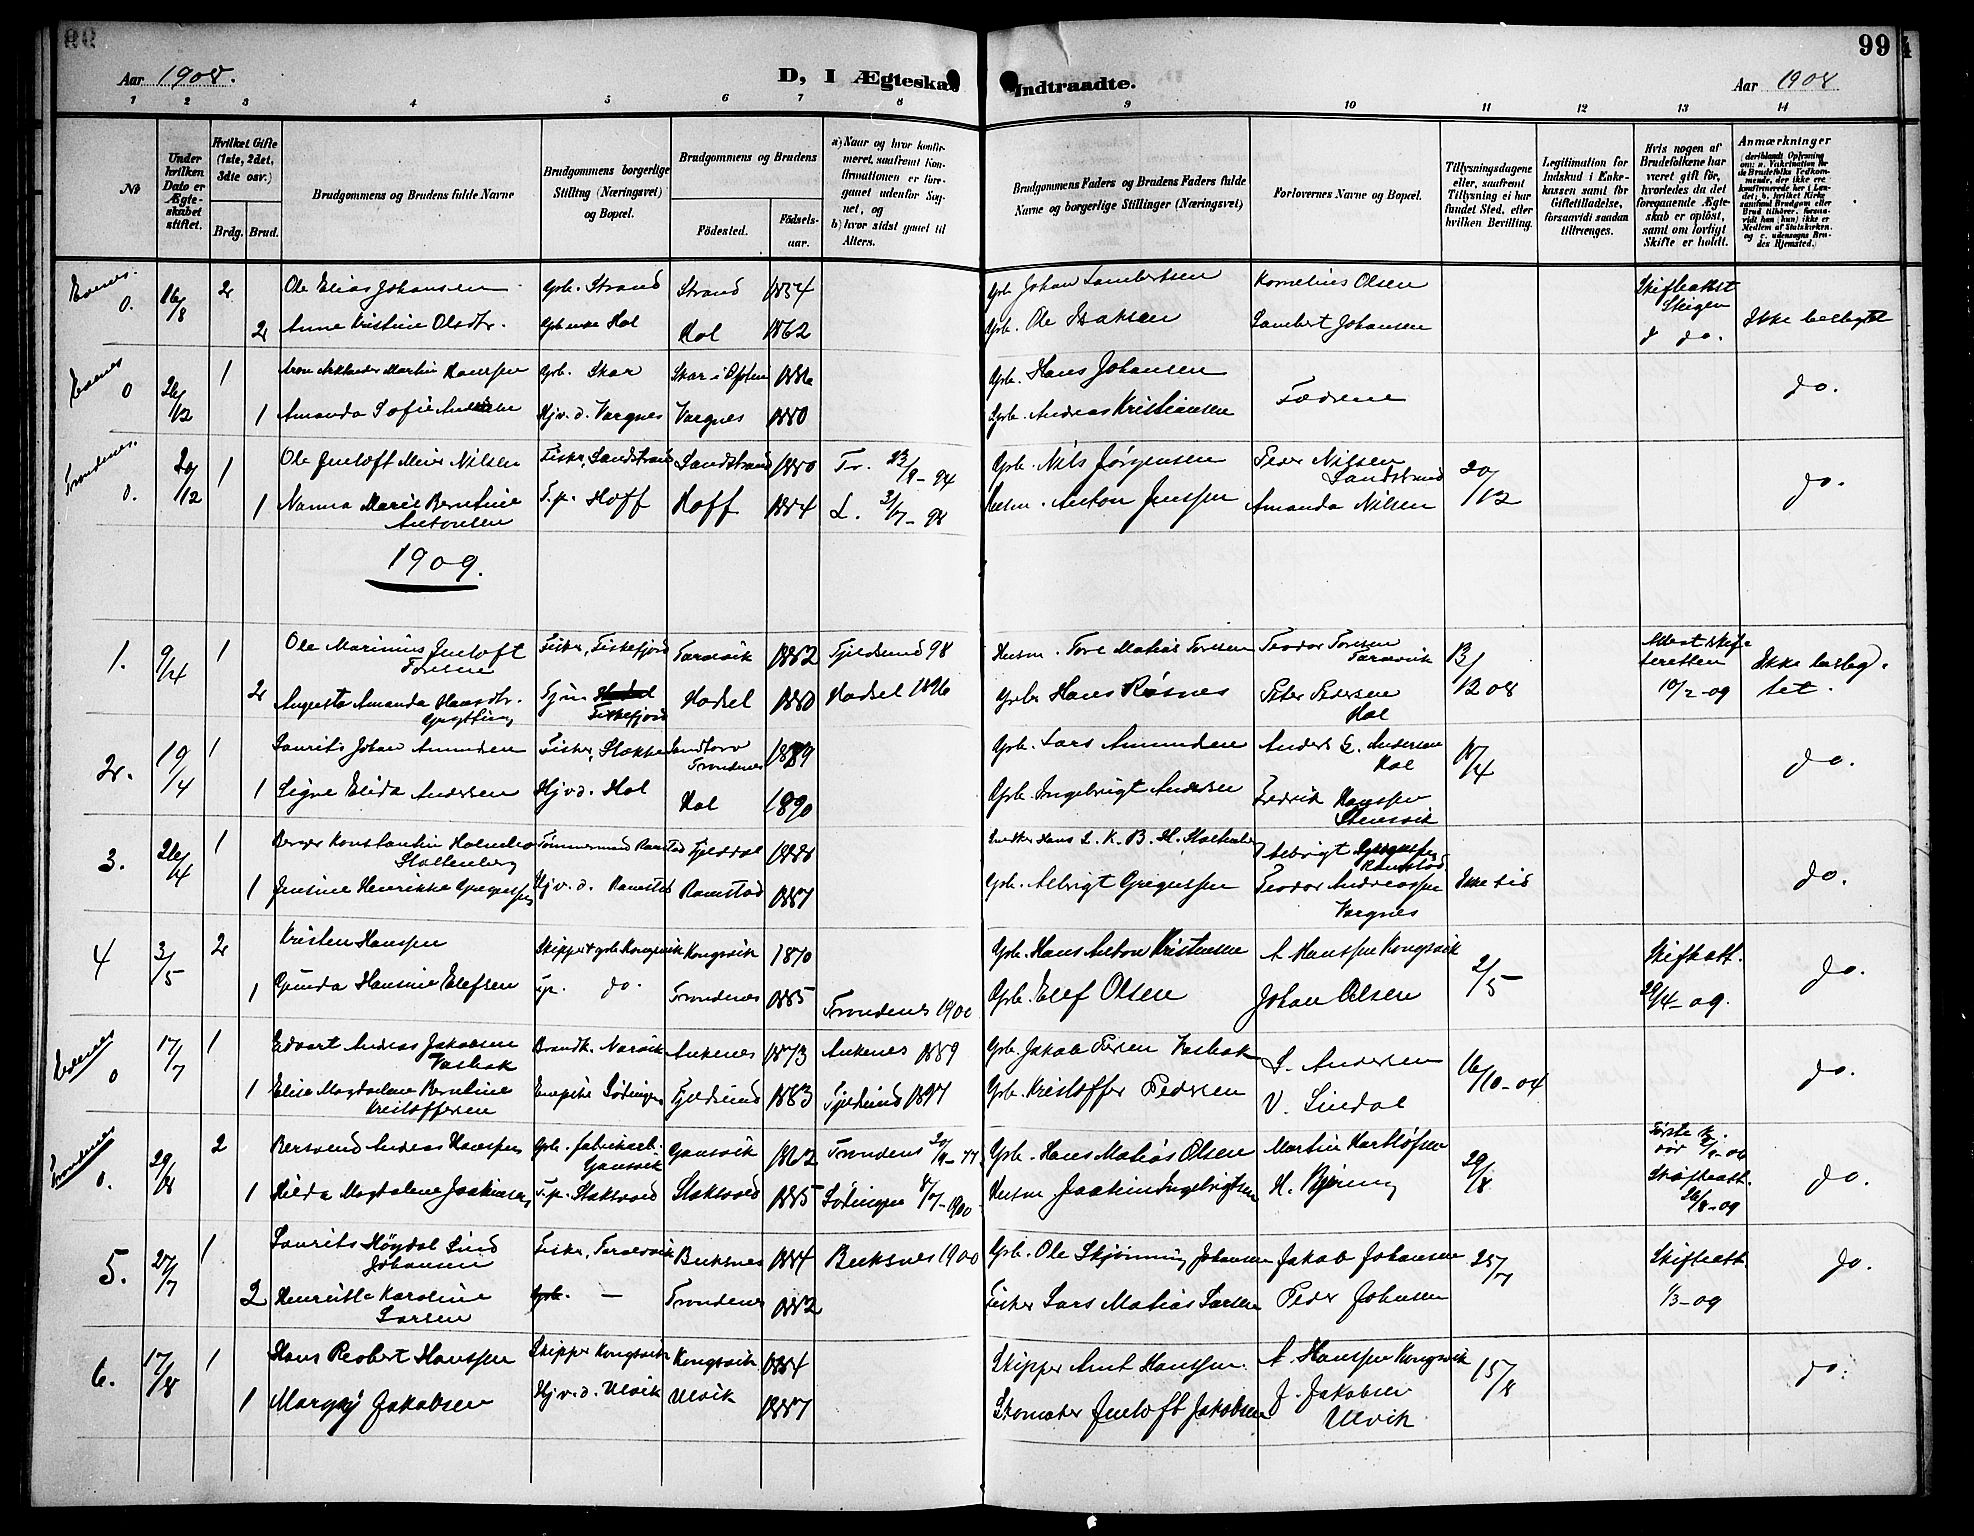 99
Aar 1908.
D, I Ægteska
Indtraadte.
Aar 1908
1 2 3 4 5 6 7 8 9 10 11 12 13 14
No
Under hvilken Dato er Ægteskabet stiftet.
Hvilket Gifte (1ste, 2det, 3die osv.)
Brdg. Brud.
Brudgommens og Brudens fulde Navne
Brudgommens borgerlige Stilling (Næringsvei) og Bopæl.
Brudgommens og Brudens
Fødested. Fødselsaar.
a) Naar og hvor konfirmeret, saafremt Konfirmationen er foregaaet udenfor Sognet, og
b) hvor sidst gaaet til Alters.
Brudgommens Faders og Brudens Faders fulde Navne og borgerlige Stillinger (Næringsvei)
Forlovernes Navne og Bopæl.
Tillysningsdagene eller, saafremt Tillysning ei har fundet Sted, efter hvilken Bevilling.
Legitimation for Indskud i Enkekassen samt for Giftetilladelse, forsaavidt saadan tiltrænges.
Hvis nogen af Brudefolkene har været gift før, hvorledes da det foregaaende Ægteskab er opløst, samt om lovligt Skifte er holdt.
Anmærkninger
Evenes. 0. 16/8 2 Ole Elias Johansen Gpb. Strand Strand 1834 Gpb. Johan Lambertsen Kornelius Olsen Skifteattst Steigen
2 Anne Kristine Olsdtr. Hol Hol 1862 Gpb. Ole Isaksen Lambert Johansen do. Ikke beslegtet
Evenes 0 26/12 1 Martin Hanssen Gpb. Skar Skar i Ofoten 1886 Gpb. Hans Johansen Fædrene do.
1 Amanda Sofie Hjv. d. Vargnes Vargnes 1880 Gpb. Andreas Kristiansen
Trondenes. 0. 20/12 1 Ole Jentoft Meier Nilsen Fisker, Sandstrand Sandstrand 1880 Tr. 23/9-94 Gpb. Nils Jørgensen Peder Nilsen Sandstrand 20/12 do.
1 Nanna Marie Berntine Antonsen F.p. Hoff Hoff 1884 L. 3/7-98 Husm. Anton Jenssen Amanda Nilsen
1909.
1. 9/4 1 Ole Marinius Jentoft Toresen Fisker, Fiskefjord Taraldvik 1882 Fjeldsund 98 Husm. Tore Matias Toresen Teodor Toresen Taraldvik 13/12 08 Attest skifteretten Ikke besleg-
2 Augusta Amanda Hansdtr. Grytting Tjen. Fiskefjord Hadsel 1880 Hadsel 1896 Gpb. Hans Røsnes Peter Pedersen Hol 10/2-09 tet.
2. 19/4 1 Laurits Johan Amundsen Fisker, Slakken Sandtorv Trondenes 1889 Gpb. Lars Amundsen Anders G. Andersen Hol 17/4 do.
1 Signe Elida Andersen Hjv. d. Hol Hol 1890 Gpb. Ingebrigt Andersen Fredrik Hanssen Stensvik
3. 26/4 1 Berger Konstantin Stoltenberg Tømmermand Ramstad Fjeldal 1888 Snedker Hans L. K. B. H. Stoltenberg Albrigt Gregussen Ramstad do.
1 Jensine Henrikke Gregussen Hjv. d. Ramstad Ramstad 1887 Gpb. Albrigt Gregussen Teodor Andreassen Vargnes Ikke tid
4 3/5 2 Kristen Hanssen Skipper & gpb. Kongsvik Kongsvik 1870 Gpb. Hans Anton Kristensen A. Hanssen Kongsvik 2/5 Skifteatt. do.
1 Gunda Hansine Elefsen do. Trondenes 1885 Trondenes 1900 Gpb. Elef Olsen Johan Olsen 29/4-09.
Evenes 0 17/7 1 Edvart Andreas Jakobsen Vasbak Brandk. Narvik Ankenes 1873 Ankenes 1889 Gpb. Jakob Persen Vasbak S. Andersen 16/10-04 do.
1 Elise Magdalene Berntine Kristoffersen Enepike Lødingen Fjeldsund 1883 Fjeldsund 1897 Gpb. Kristoffer Pedersen V. Lindal
Trondenes 0. 29/8 2 Bersvend Andreas Hanssen Gpb. fabrikarb. Gausvik Gausvik 1862 Trondenes 20/4-77 Gpb. Hans Matias Olsen Martin 29/8 Første død do.
1 Hilda Magdalene Joakimsen F.p. Slaksvold Slaksvold 1885 Lødingen 8/7-1900 Husm Joakim Ingebrigtsen H. Bjøring Skifteatt. 26/8-09
5. 27/7 1 Laurits Høydal Lind Johansen Fisker, Taraldvik Buksnes 1884 Buksnes 1900 Gpb. Ole Skjønning Johansen Jakob Johansen 25/7 Skifteatt. do.
2 Henrikke Karoline Larsen — Trondenes 1882 Fisker Lars Matias Larsen Peder Johnsen 1/3-09
6. 17/8 1 Hans Peobert Hanssen Skipper Kongsvik Kongsvik 1884 Skipper Arnt Hanssen. A. Hanssen Kongsvik 15/8 do.
1 Margay Jakobsen Hjv. d. Ulvik Ulvik 1887 Skomaker Jentoft Jakobsen J. Jakobsen Ulvik